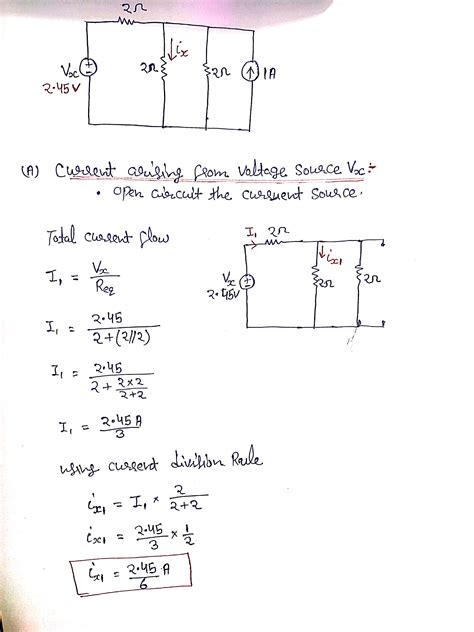 2Ω
Vx
2.45V
2Ω
ix
2Ω
1A
(A) Current arising from Voltage Source Vx:-
• Open circuit the current source.
Total current flow
I₁ = Vx / Req
I₁ = 2.45 / 2+(2//2)
I₁ = 2.45 / 2 + 2×2 / 2+2
I₁ = 2.45 A / 3
I₁ 2Ω
ix₁
Vx
2.45V
2Ω
2Ω
using current division Rule
ix₁ = I₁ × 2 / 2+2
ix₁ = 2.45 / 3 × 1 / 2
ix₁ = 2.45 A / 6